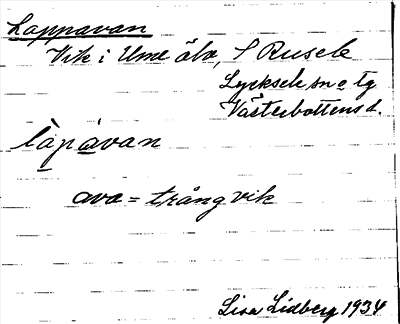 Lappavan
Vik i Ume älv, S Rusele
Lycksele sn o tg
Västerbottens l.
làpávan
ava = trång vik
Lisa Lidberg 1934